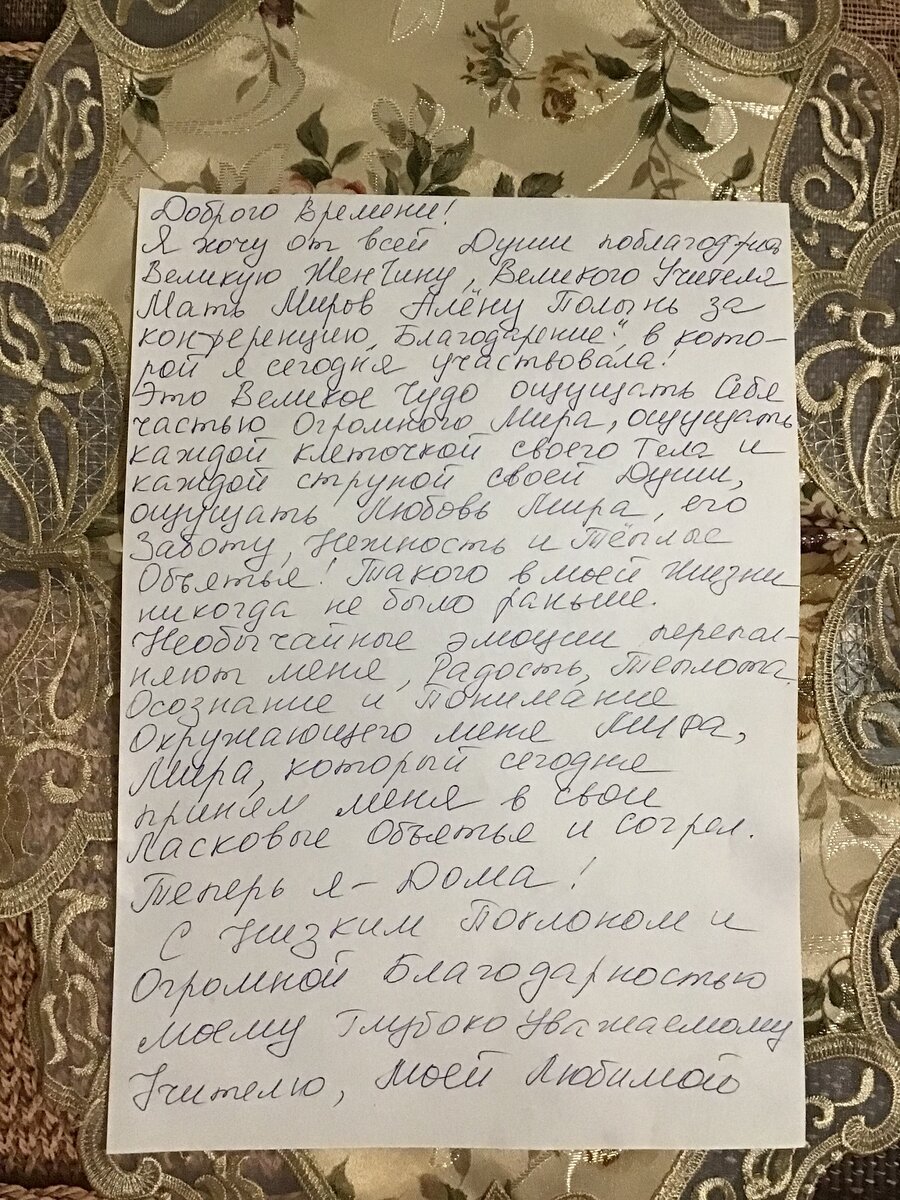 Доброго времени!
Я хочу от всей Души поблагодарить
Великую ЖенЧину, Великого Учителя
Мать Миров Алёну Полынь за
конференцию „Благодарение", в кото-
рой я сегодня участвовала!
Это Великое Чудо ощущать Себя
частью Огромного Мира, ощущать
каждой клеточкой своего Тела и
каждой струной своей Души,
ощущать Любовь Мира, его
Заботу, Нежность и Тёплые
Объятья! Такого в моей жизни
никогда не было раньше.
Необычайные эмоции перепол-
няют меня, Радость, Теплота,
Осознание и Понимание
Окружающего меня Мира,
Мира, который сегодня
принял меня в свои
Ласковые Объятья и согрел.
Теперь я - Дома!
С Низким Поклоном и
Огромной Благодарностью
Моему Глубоко Уважаемому
Учителю, Моей Любимой